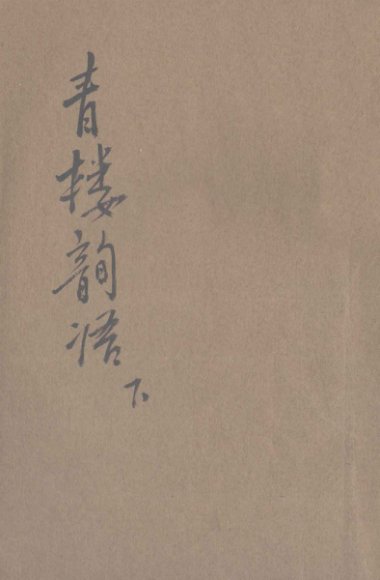 青楼韵语
下